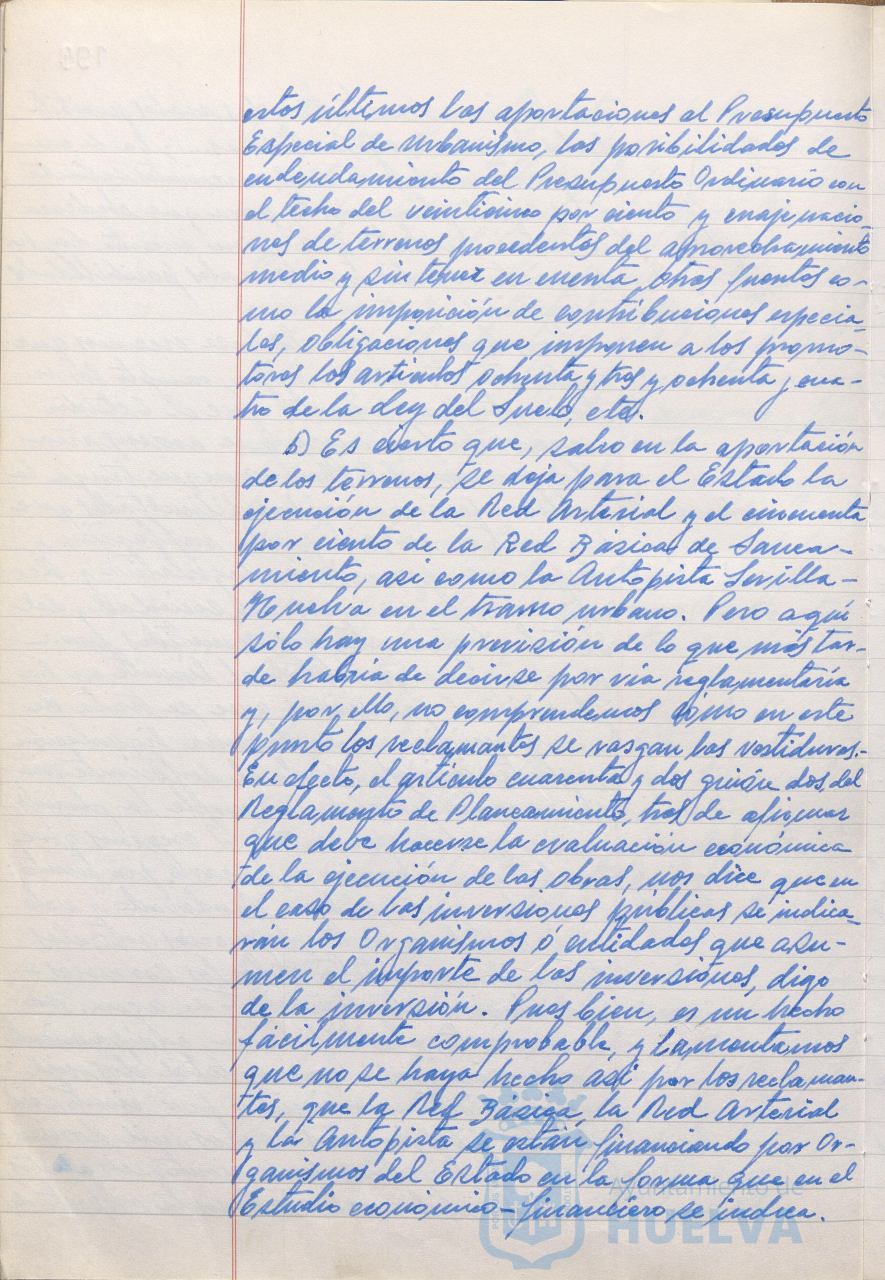 estos últimos las aportaciones al Presupuesto
Especial de Urbanismo, las posibilidades de
endeudamiento del Presupuesto Ordinario con
el techo del veinticinco por ciento y enajenacio-
nes de terrenos procedentes del aprovechamiento
medio y sin tener en cuenta otras fuentes co-
mo la imposición de contribuciones especia-
les, obligaciones que imponen a los promo-
tores los artículos ochenta y tres y ochenta y cua-
tro de la Ley del Suelo, etc.
b) Es cierto que, salvo en la aportación
de los terrenos, se deja para el Estado la
ejecución de la Red Arterial y el cincuenta
por ciento de la Red Básica de Sanea-
miento, así como la Autopista Sevilla-
Huelva en el tramo urbano. Pero aquí
sólo hay una previsión de lo que más tar-
de habría de decirse por vía reglamentaria
y, por ello, no comprendemos cómo en este
punto los reclamantes se rasgan las vestiduras.-
En efecto, el artículo cuarenta y dos guión dos, del
Reglamento de Planeamiento, tras de afirmar
que debe hacerse la evaluación económica
de la ejecución de las obras, nos dice que en
el caso de las inversiones públicas se indica-
rán los Organismos ó entidades que asu-
men el importe de las inversiones, digo
de la inversión. Pues bien, es un hecho
fácilmente comprobable, y lamentamos
que no se haya hecho así por los reclaman-
tes, que la Red Básica, la Red Arterial
y la Autopista se están financiando por Or-
ganismos del Estado en la forma que en el
Estudio económico-financiero se indica.
Ayuntamiento de
HUELVA